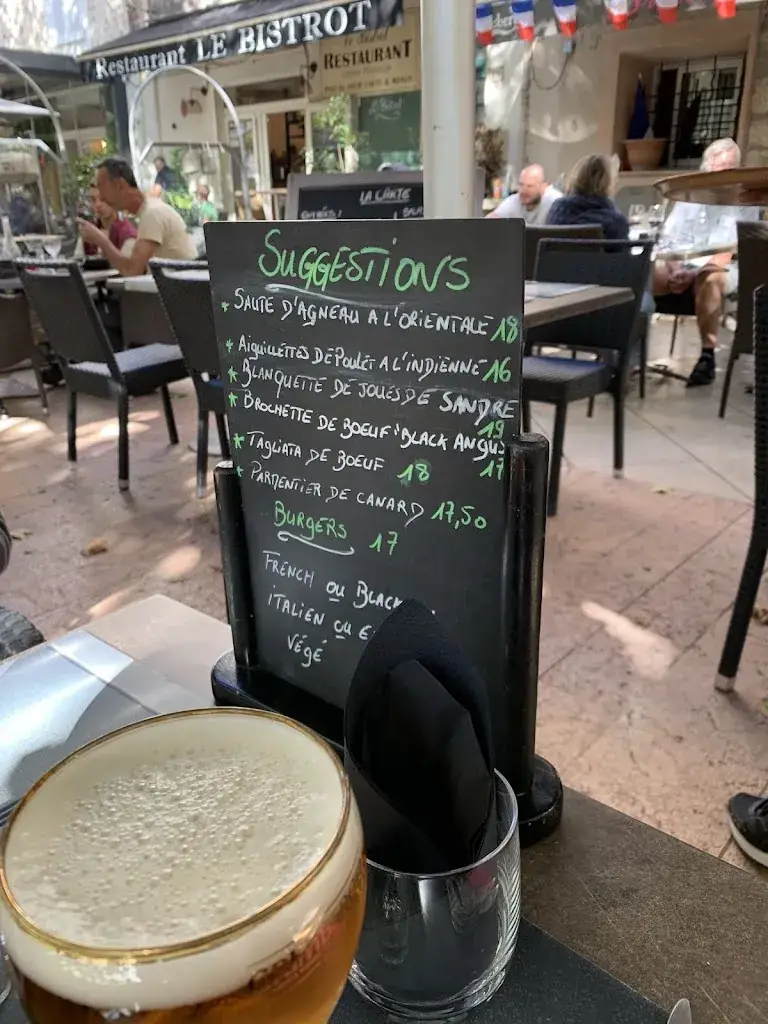 Restaurant LE BISTROT
RESTAURANT
LA CARTE
SUGGESTIONS
* SAUTE D'AGNEAU A L'ORIENTALE 18
* AIGUILLETTES DE POULET A L'INDIENNE 16
* BLANQUETTE DE JOUES DE SANDRE 19
* BROCHETTE DE BOEUF "BLACK ANGUS 17
* TAGLIATA DE BOEUF 18
* PARMENTIER DE CANARD 17,50
BURGERS 17
FRENCH OU BLACK
ITALIEN OU
VÉGÉ